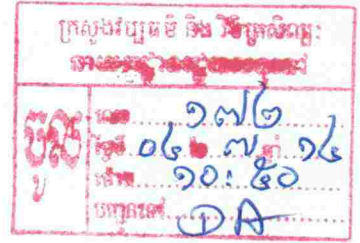 ក្រសួងវប្បធម៌ និង វិចិត្រសិល្បៈ
ចូល
លេខ ១៧២
ថ្ងៃទី ០៤ ៧ ឆ្នាំ ១៤
ម៉ោង ១០:៥០
បញ្ជូនទៅ DA